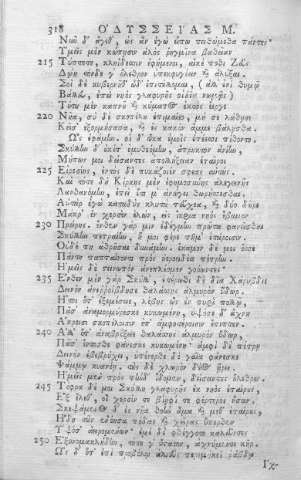 318 ΟΔΥΣΣΕΙΑΣ Μ.
Νῦν δ' ἄγεθ', ὡς ἂν ἐγὼ εἴπω πειθώμεθα πάντες·
Ὑμεῖς μὲν κώπησιν ἁλὸς ῥηγμῖνα βαθεῖαν
215 Τύπτετε, κληΐδεσσιν ἐφήμενοι, αἴκέ ποθι Ζεὺς
Δώῃ τόνδε γ' ὄλεθρον ὑπεκφυγέειν καὶ ἀλύξαι.
Σοὶ δὲ κυβερνῆθ' ὧδ' ἐπιτέλλομαι, (ἀλλ' ἐνὶ θυμῷ
Βάλλευ, ἐπεὶ νηὸς γλαφυρῆς οἰήϊα νωμᾷς)
Τούτου μὲν καπνοῦ καὶ κύματος ἐκτὸς ἔεργε
220 Νῆα, σὺ δὲ σκοπέλου ἐπιμαίεο, μή σε λάθῃσι
Κεῖσ' ἐξορμήσασα, καὶ ἐς κακὸν ἄμμε βάλῃσθα.
Ὣς ἐφάμην, οἱ δ' ὦκα ἐμοῖς ἐπέεσσι πίθοντο.
Σκύλλην δ' οὐκέτ' ἐμυθεόμην, ἄπρηκτον ἀνίην,
Μήπως μοι δείσαντες ἀπολλήξειαν ἑταῖροι
225 Εἰρεσίης, ἐντὸς δὲ πυκάζοιεν σφέας αὐτούς.
Καὶ τότε δὴ Κίρκης μὲν ἐφημοσύνης ἀλεγεινῆς
Λανθανόμην, ἐπεὶ οὔ μ' ἀνώγει θωρήσσεσθαι.
Αὐτὰρ ἐγὼ καταδὺς κλυτὰ τεύχεα, καὶ δύο δοῦρε
Μάκρ' ἐν χερσὶν ἑλών, εἰς ἴκρια νηὸς ἔβαινον
230 Πρώρης· ἔνθεν γάρ μιν ἐδέγμην πρῶτα φανεῖσθαι
Σκύλλην πετραίην, ἥ μοι φέρε πῆμ' ἑτάροισιν.
Οὐδέ πη ἀθρῆσαι δυνάμην· ἔκαμον δέ μοι ὄσσε
Πάντη παπταίνοντι πρὸς ἠεροειδέα πέτρην.
Ἡμεῖς δὲ στεινωπὸν ἀνεπλέομεν γοόωντες·
235 Ἔνθεν μὲν γὰρ Σκύλλ', ἑτέρωθι δὲ δῖα Χάρυβδις
Δεινὸν ἀνερρύβδησε θαλάσσης ἁλμυρὸν ὕδωρ.
Ἤτοι ὅτ' ἐξεμέσειε, λέβης ὣς ἐν πυρὶ πολλῷ,
Πᾶσ' ἀναμορμύρεσκε κυκωμένη· ὑψόσε δ' ἄχνη
Ἄκροισι σκοπέλοισιν ἐπ' ἀμφοτέροισιν ἔπιπτεν.
240 Ἀλλ' ὅτ' ἀναβρόξειε θαλάσσης ἁλμυρὸν ὕδωρ,
Πᾶσ' ἔντοσθε φάνεσκε κυκωμένη· ἀμφὶ δὲ πέτρη
Δεινὸν ἐβεβρύχει, ὑπένερθε δὲ γαῖα φάνεσκε
Ψάμμῳ κυανέη· τοὺς δὲ χλωρὸν δέος ᾕρει.
Ἡμεῖς μὲν πρὸς τὴνδ' ἴδομεν, δείσαντες ὄλεθρον.
245 Τόφρα δέ μοι Σκύλλη γλαφυρῆς ἐκ νηὸς ἑταίρους
Ἓξ ἕλεθ', οἳ χερσίν τε βίηφί τε φέρτεροι ἦσαν.
Σκεψάμενος δ' ἐς νῆα θοὴν ἅμα καὶ μεθ' ἑταίρους,
Ἤδη τῶν ἐνόησα πόδας καὶ χεῖρας ὕπερθεν
Ὑψόσ' ἀειρομένων· ἐμὲ δὲ φθέγγοντο καλεῦντες
250 Ἐξονομακλήδην, τότε γ' ὕστατον, ἀχνύμενοι κῆρ.
Ὡς δ' ὅτ' ἐπὶ προβόλῳ ἁλιεὺς περιμήκεϊ ῥάβδῳ
Ἰχ-